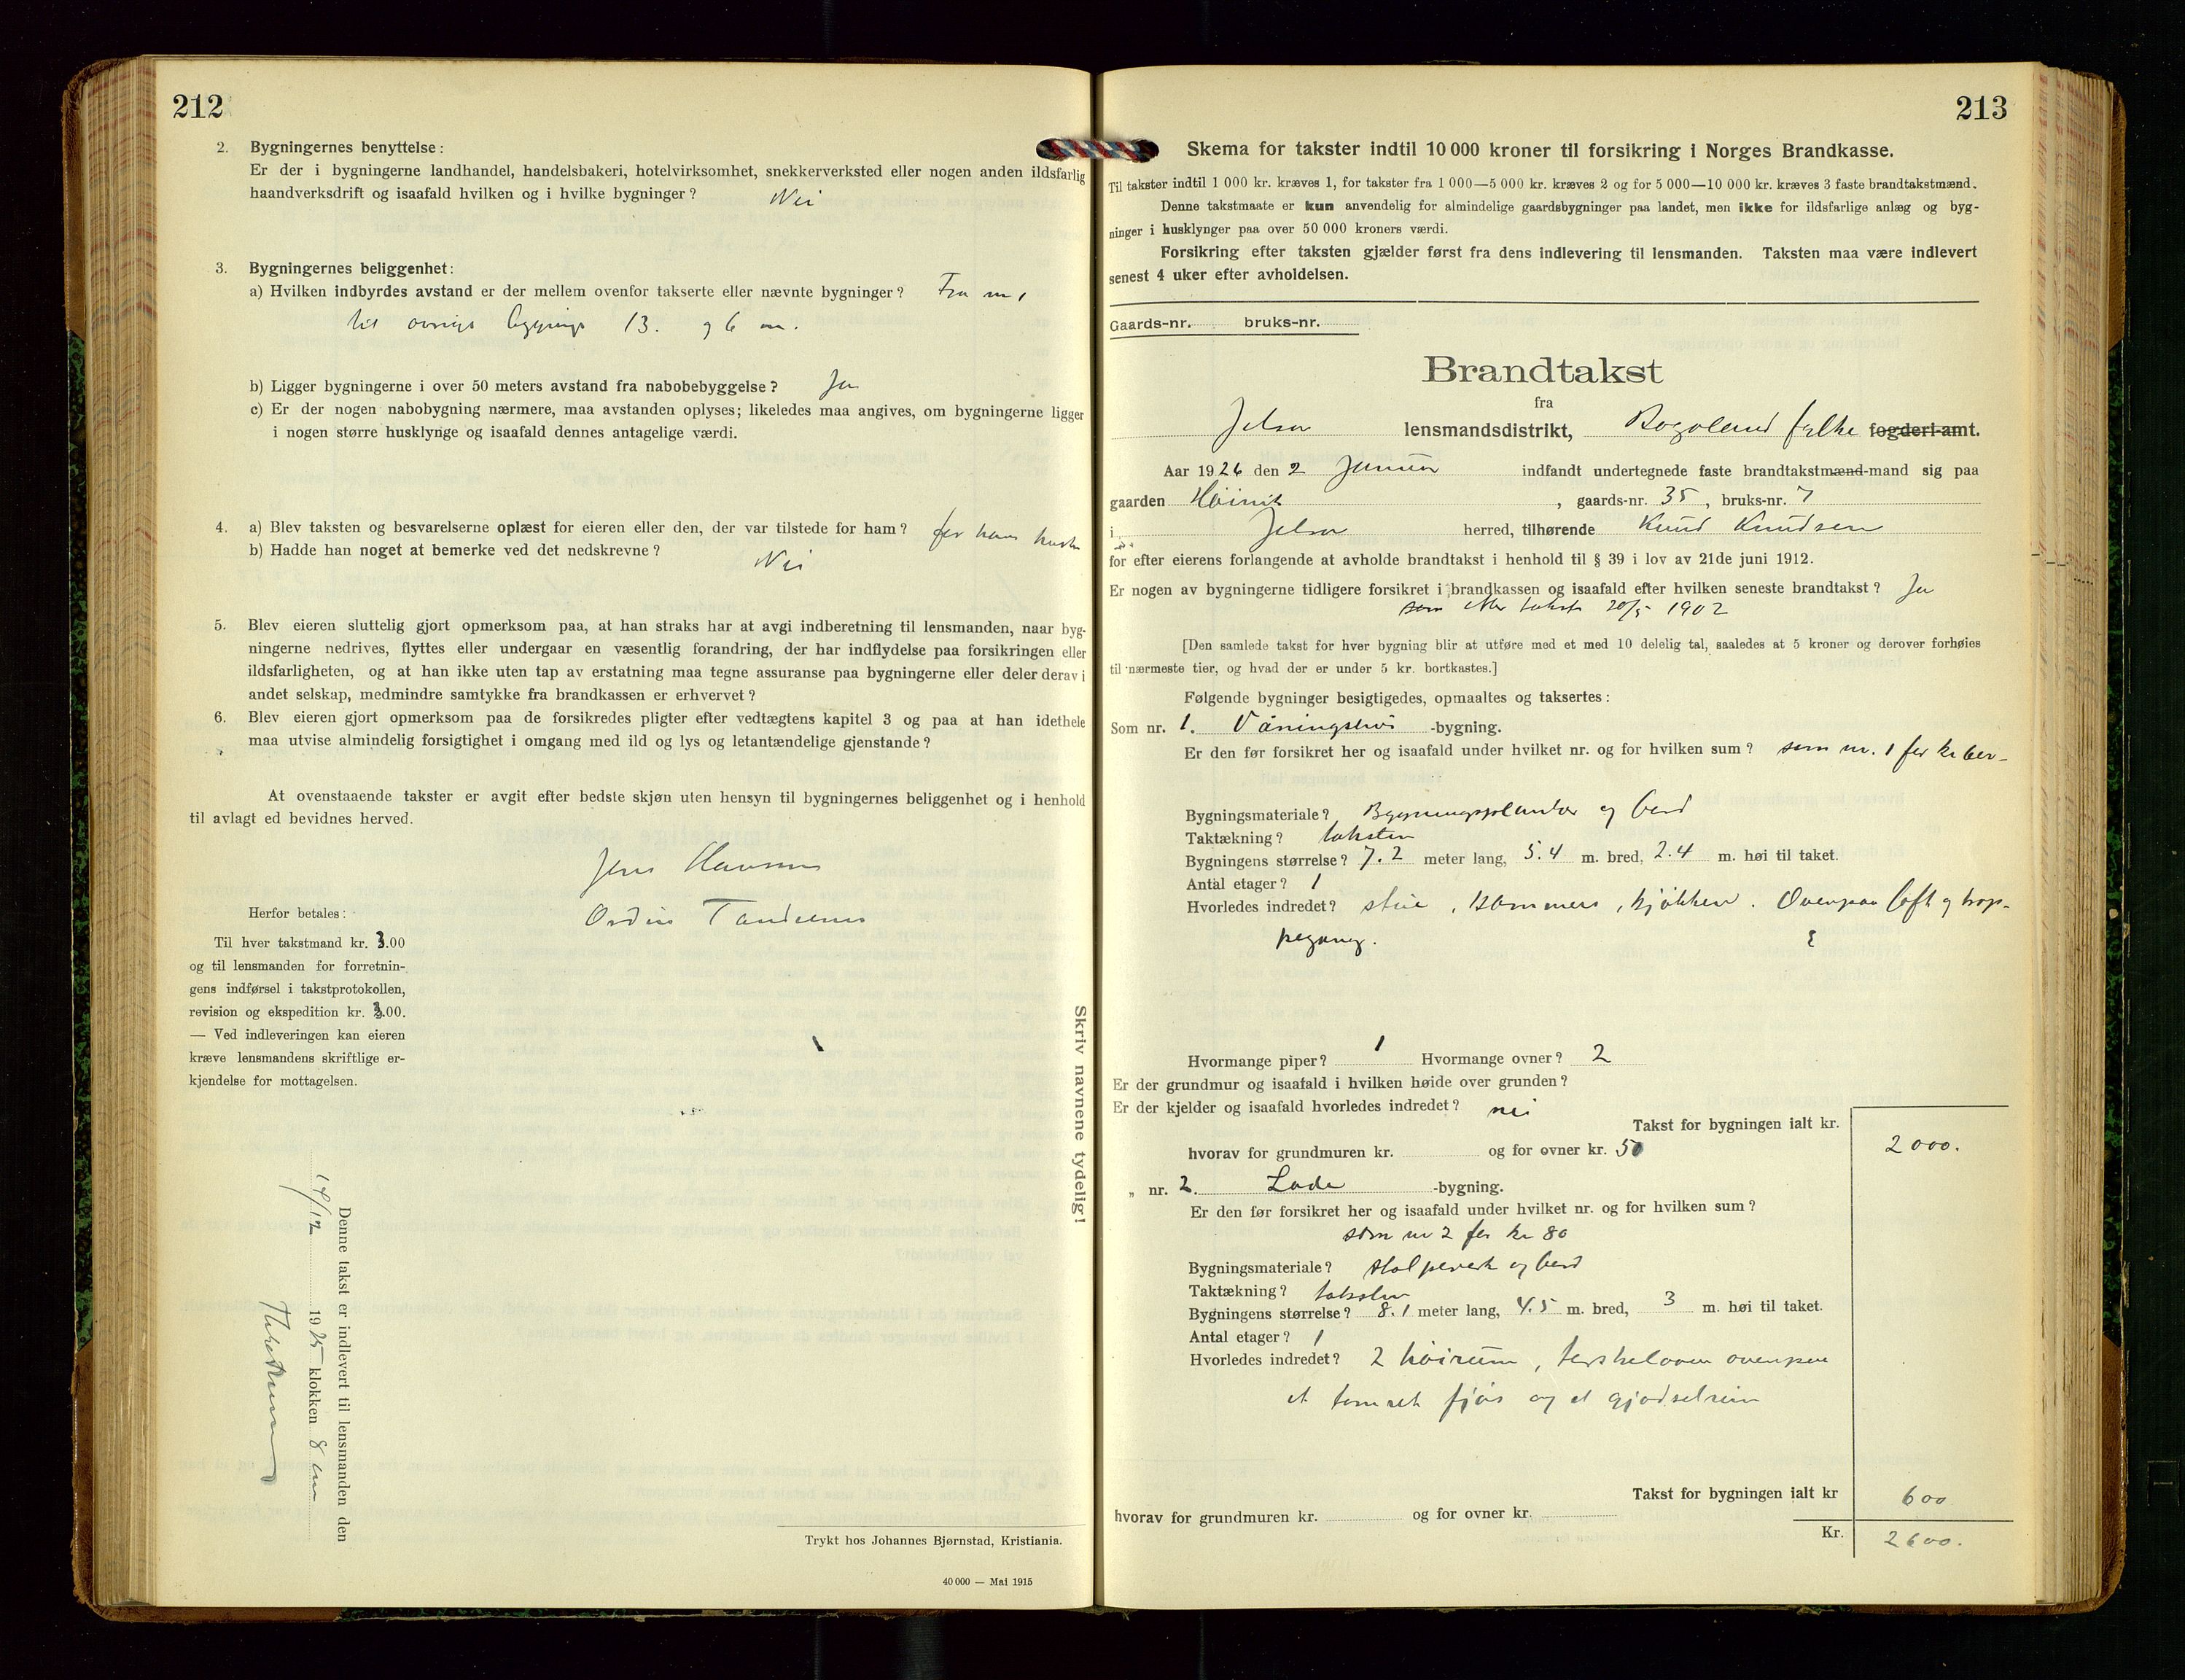 212
2. Bygningernes benyttelse:
Er der i bygningerne landhandel, handelsbakeri, hotelvirksomhet, snekkerverksted eller nogen anden ildsfarlig
haandverksdrift og isaafald hvilken og i hvilke bygninger? Nei
3. Bygningernes beliggenhet:
a) Hvilken indbyrdes avstand er der mellem ovenfor takserte eller nævnte bygninger? Fra nr 1
til 13. og 6 m.
b) Ligger bygningerne i over 50 meters avstand fra nabobebyggelse? Ja
c) Er der nogen nabobygning nærmere, maa avstanden oplyses; likeledes maa angives, om bygningerne ligger
i nogen større husklynge og isaafald dennes antagelige værdi.
4. a) Blev taksten og besvarelserne oplæst for eieren eller den, der var tilstede for ham? for hans
b) Hadde han noget at bemerke ved det nedskrevne? Nei
5. Blev eieren sluttelig gjort opmerksom paa, at han straks har at avgi indberetning til lensmanden, naar byg-
ningerne nedrives, flyttes eller undergaar en væsentlig forandring, der har indflydelse paa forsikringen eller
ildsfarligheten, og at han ikke uten tap av erstatning maa tegne assuranse paa bygningerne eller deler derav i
andet selskap, medmindre samtykke fra brandkassen er erhvervet?
6. Blev eieren gjort opmerksom paa de forsikredes pligter efter vedtægtens kapitel 3 og paa at han idethele
maa utvise almindelig forsigtighet i omgang med ild og lys og letantændelige gjenstande?
At ovenstaaende takster er avgit efter bedste skjøn uten hensyn til bygningernes beliggenhet og i henhold
til avlagt ed bevidnes herved.
Jens
Herfor betales:
Til hver takstmand kr. 3.00
og til lensmanden for forretnin-
gens indførsel i takstprotokollen,
revision og ekspedition kr. 3.00.
— Ved indleveringen kan eieren
kræve lensmandens skriftlige er-
kjendelse for mottagelsen.
Denne takst er indlevert til lensmanden den
14/12 1925 klokken 8 em
Skriv navnene tydelig!
Trykt hos Johannes Bjørnstad, Kristiania.
40 000 — Mai 1915
213
Skema for takster indtil 10 000 kroner til forsikring i Norges Brandkasse.
Til takster indtil 1 000 kr. kræves 1, for takster fra 1 000—5 000 kr. kræves 2 og for 5 000—10 000 kr. kræves 3 faste brandtakstmænd.
Denne takstmaate er kun anvendelig for almindelige gaardsbygninger paa landet, men ikke for ildsfarlige anlæg og byg-
ninger i husklynger paa over 50 000 kroners værdi.
Forsikring efter taksten gjælder først fra dens indlevering til lensmanden. Taksten maa være indlevert
senest 4 uker efter avholdelsen.
Gaards-nr. bruks-nr.
Brandtakst
fra
Jelsa lensmandsdistrikt, Rogoland fylke fogderi-amt.
Aar 1926 den 2 Januar indfandt undertegnede faste brandtakstmænd-mand sig paa
gaarden Høivik, gaards-nr. 35, bruks-nr. 7
i Jelsa herred, tilhørende Knud Knudsen
for efter eierens forlangende at avholde brandtakst i henhold til § 39 i lov av 21de juni 1912.
Er nogen av bygningerne tidligere forsikret i brandkassen og isaafald efter hvilken seneste brandtakst? Ja
som efter takst 20/5 1902
[Den samlede takst for hver bygning blir at utføre med et med 10 delelig tal, saaledes at 5 kroner og derover forhøies
til nærmeste tier, og hvad der er under 5 kr. bortkastes.]
Følgende bygninger besigtigedes, opmaaltes og taksertes:
Som nr. 1. Våningshus -bygning.
Er den før forsikret her og isaafald under hvilket nr. og for hvilken sum? som nr. 1 for kr
Bygningsmateriale? Bygningsplanker og bord
Taktækning? taksten
Bygningens størrelse? 7.2 meter lang, 5.4 m. bred, 2.4 m. høi til taket.
Antal etager? 1
Hvorledes indredet? stue, kammers, kjøkken. Ovenpaa loft og trap-
pegang.
Hvormange piper? 1 Hvormange ovner? 2
Er der grundmur og isaafald i hvilken høide over grunden?
Er der kjelder og isaafald hvorledes indredet? nei
Takst for bygningen ialt kr. 2000.
hvorav for grundmuren kr. og for ovner kr. 50
„ nr. 2. Lade -bygning.
Er den før forsikret her og isaafald under hvilket nr. og for hvilken sum?
som nr 2 for kr 80
Bygningsmateriale? stolpeverk og bord
Taktækning? taksten
Bygningens størrelse? 8.1 meter lang, 4.5 m. bred, 3 m. høi til taket.
Antal etager? 1
Hvorledes indredet? 2 høirum, terskeloven ovenpaa
et tømret fjøs og et gjødselrum
Takst for bygningen ialt kr 600
hvorav for grundmuren kr. og for ovner kr.
Kr. 2600.